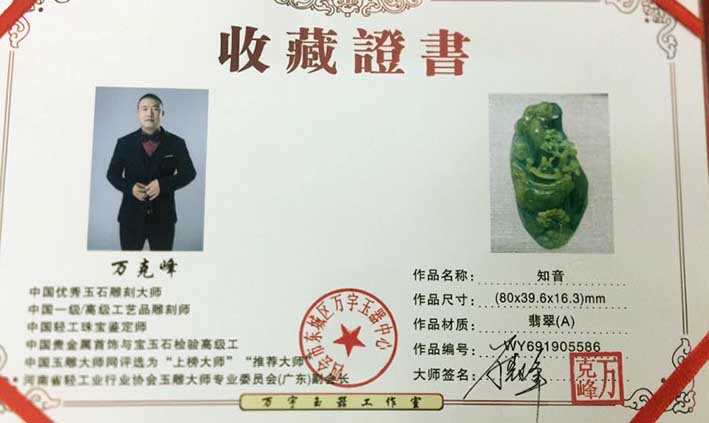 收藏證書
万克峰
中国优秀玉石雕刻大师
中国一级/高级工艺品雕刻师
中国轻工珠宝鉴定师
中国贵金属首饰与宝玉石检验高级工
中国玉雕大师网评选为“上榜大师”“推荐大师”
河南省轻工业行业协会玉雕大师专业委员会(广东)副会长
会市东城区万宇玉器中心
作品名称: 知音
作品尺寸: (80x39.6x16.3)mm
作品材质: 翡翠(A)
作品编号: WY691905586
大师签名: 万克峰
万克峰
万宇玉器工作室